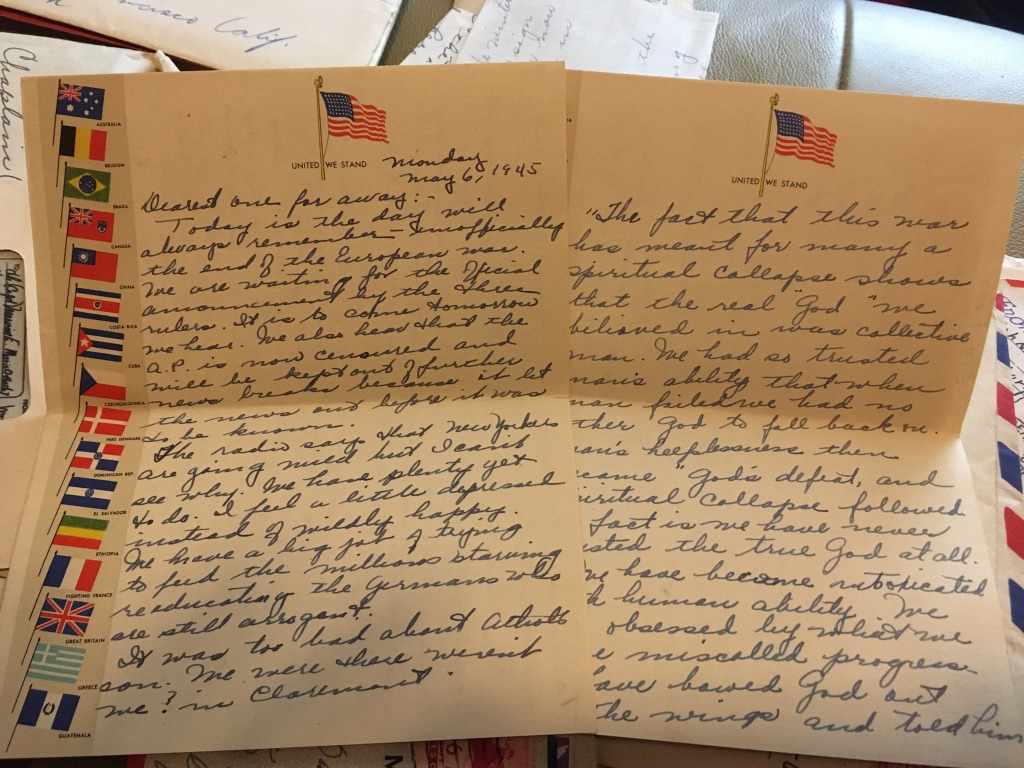 cisco Calif.
Chaplain
AUSTRALIA
BELGIUM
BRAZIL
CANADA
CHINA
COSTA RICA
CUBA
CZECHOSLOVAKIA
FREE DENMARK
DOMINICAN REP.
EL SALVADOR
ETHIOPIA
FIGHTING FRANCE
GREAT BRITAIN
GREECE
GUATEMALA
UNITED WE STAND
Monday
May 6, 1945
Dearest one far away:-
Today is the day will
always remember - unofficially
the end of the European war.
We are waiting for the official
announcement by the three
rulers. It is to come tomorrow
we hear. We also hear that the
A.P. is now censured and
will be kept out of further
news breaks because it let
the news out before it was
to be known.
The radio says that New Yorkers
are going wild but I can't
see why. We have plenty yet
to do. I feel a little depressed
instead of wildly happy.
We have a big job of trying
to feed the millions starving
reeducating the Germans who
are still arrogant.
It was too bad about
son. We were there weren't
we? in Claremont.
UNITED WE STAND
"The fact that this war
has meant for many a
spiritual collapse shows
that the real "God" we
bilieved in was collective
man. We had so trusted
man's ability that when
man failed we had no
ther God to fall back on.
an's helplessness then
came "God's defeat, and
iritual collapse followed
fact is we have never
sted the true God at all.
we have become intoxicated
h human ability. We
obsessed by what we
e miscalled progress
ave bowed God out
the wings and told him